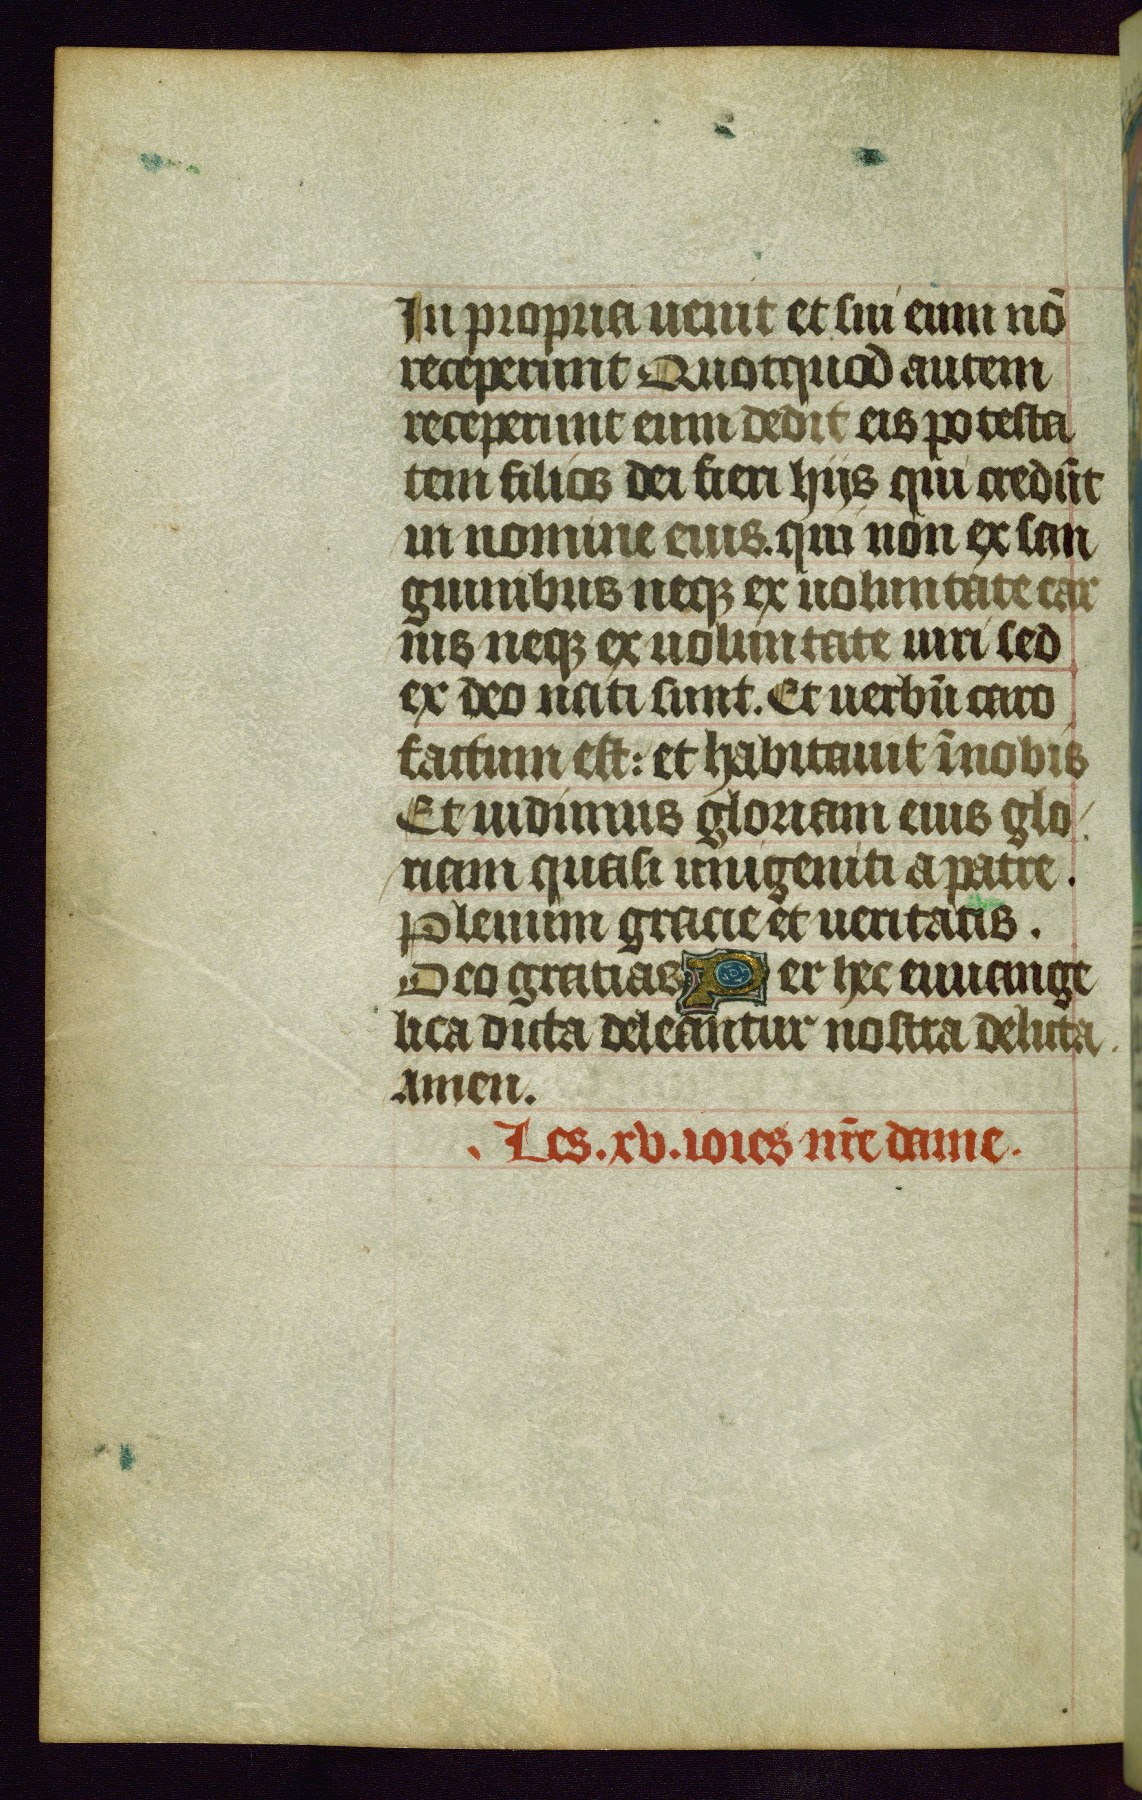 In propria uenit et sui eum nō
receperunt Quotquod autem
receperunt eum dedit eis potesta
tem filios dei fieri hijs qui credūt
in nomine eius. qui non ex san
guinibus neqꝫ ex uoluntate car
nis neqꝫ ex uoluntate uiri sed
ex deo nati sunt. Et uerbū caro
factum est: et habitauit ī nobis
Et uidimus gloriam eius glo
riam quasi unigeniti a patre.
Plenum gracie et ueritatis.
Deo gratias Per hec euuange
lica dicta deleantur nostra delicta.
amen.
Les. xv. ioies nr̄e dame.